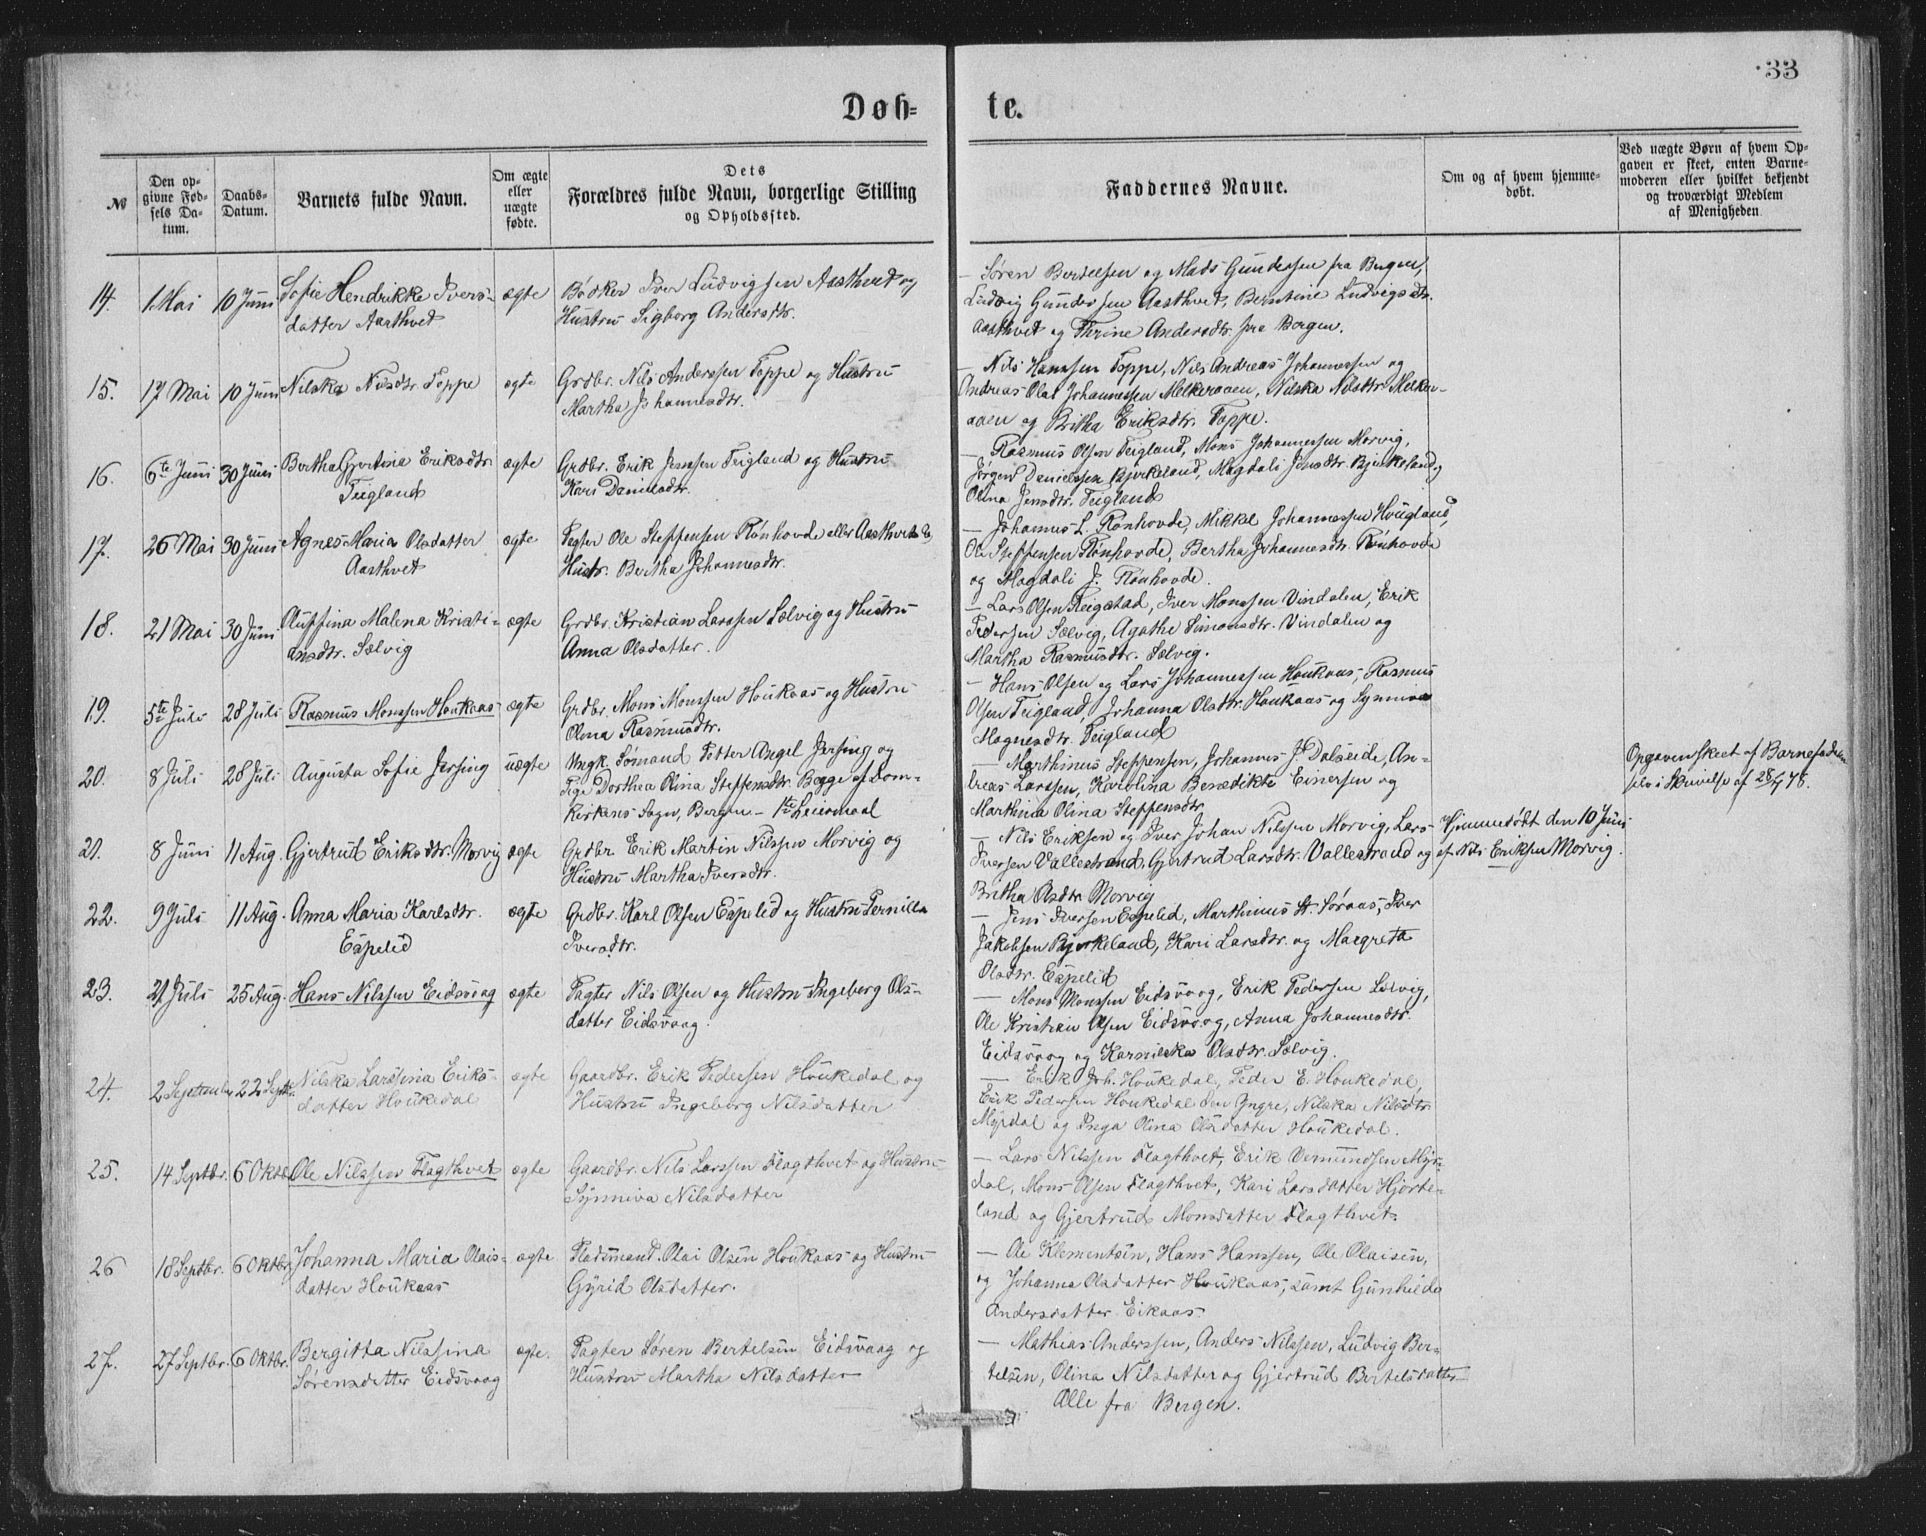 33
Døb= te.
№
Den op-
givne Fød-
sels Da-
tum.
Daabs-
Datum.
Barnets fulde Navn.
Om ægte
eller
uægte
fødte.
Dets
Forældres fulde Navn, borgerlige Stilling
og Opholdssted.
Faddernes Navne.
Om og af hvem hjemme-
døbt.
Ved uægte Børn af hvem Op-
gaven er skeet, enten Barne-
moderen eller hvilket bekjendt
og troværdigt Medlem
af Menigheden.
14. 1 Mai 10 Juni Sofie Hendrikke Ivers-
datter Aasthvet
ægte
Bødker Iver Ludvigsen Aasthvet og
Hustru Sigborg Andersdtr.
— Søren Bertelsen og Mads Gundersen fra Bergen,
Ludvig Gundersen Aasthvet, Berntine Ludvigsdtr.
Aasthvet og Thrine Andersdtr. fra Bergen.
15. 17 Mai 10 Juni Nilska Nilsdtr. Toppe
ægte
Grdbr. Nils Anderssen Toppe og Hustru
Martha Johannesdtr.
— Nils Hanssen Toppe, Nils Andreas Johannessen og
Andreas Olai Johannessen Melkeraaen, Nilska Nilsdtr. Melker-
aaen og Britha Eriksdtr. Toppe.
16. 6te Juni 30 Juni Bertha Gjertina Eriksdtr.
Teigland
ægte
Grdbr. Erik Jenssen Teigland og Hustru
Kari Danielsdtr.
— Rasmus Olsen Teigland, Mons Johannessen Morvig,
Jørgen Danielssen Bjirkeland, Magdali Jensdtr. Bjirkeland og
Olina Jensdtr. Teigland
17. 26 Mai 30 Juni Agnes Maria Olsdatter
Aasthvet
ægte
Pagter Ole Steffensen Rønhovde eller Aasthvet &
Hustr. Bertha Johannesdtr.
— Johannes L. Rønhovde, Mikkel Johannessen Hougland,
Ole Steffensen Rønhovde, Bertha Johannesdtr. Rønhovde
og Magdali J. Rønhovde.
18. 21 Mai 30 Juni Oluffina Malena Kristi-
ansdtr. Sælvig
ægte
Grdbr. Kristian Larssen Sælvig og Hustru
Anna Olsdatter.
— Lars Olsen Reigstad, Iver Monssen Vindalen, Erik
Pedersen Sælvig, Agathe Simonsdtr. Vindalen og
Martha Rasmusdtr. Sælvig.
19. 5te Juli 28 Juli Rasmus Monssen Houkaas
ægte
Grdbr. Mons Monssen Houkaas og Hustru
Olina Rasmusdtr.
— Hans Olsen og Lars Johannessen Houkaas, Rasmus
Olsen Teigland, Johanna Olsdtr. Houkaas og Synneva
Magnesdtr. Teigland
20. 8 Juli 28 Juli Augusta Sofie Jersing
uægte
Ungk. Sømand Petter Angel Jersing og
Pige Dorthea Olina Steffensdtr. Begge af Dom-
Kirkens Sogn, Bergen — 1te Leiermaal
— Marthinus Steffensen, Johannes J. Dalseide, An-
dreas Larssen, Karolina Benedikte Einersen og
Marthina Olina Steffensdtr.
Opgaven skeet af Barnefaderen
selv i Skrivelse af 28/7 78.
21. 8 Juni 11 Aug. Gjertrud Eriksdtr. Morvig
ægte
Grdbr Erik Martin Nilssen Morvig og
Hustru Martha Iversdtr.
— Nils Eriksen og Iver Johan Nilssen Morvig, Lars
Iversen Vallestrand, Gjertrud Larsdtr. Vallestrand og
Britha Olsdtr Morvig
Hjemmedøbt den 10 Juni
af Nils Eriksen Morvig.
22. 9 Juli 11 Aug. Anna Maria Karlsdtr.
Espelid
ægte
Grdbr. Karl Olsen Espelid og Hustru Pernilla
Iversdtr.
— Jens Iversen Espelid, Marthinus St. Søraas, Iver
Jakobsen Bjørkeland, Kari Larsdtr. og Margreta
Olsdtr. Espelid
23. 21 Juli 25 Aug. Hans Nilssen Eidsvaag
ægte
Pagter Nils Olsen og Hustru Ingeborg Ols-
datter Eidsvaag.
— Mons Monssen Eidsvaag, Erik Pedersen Sælvig,
Ole Kristian Olsen Eidsvaag, Anna Johannesdtr.
Eidsvaag og Karnilska Olsdtr. Sælvig.
24. 2 September 22 Septbr. Nilska Larssina Eriks-
datter Houkedal
ægte
Gaardbr. Erik Pedersen Houkedal og
Hustru Ingeborg Nilsdatter
— Erik Joh. Houkedal, Peder E. Houkedal,
Erik Pedersen Houkedal den Yngre, Nilska Nilsdtr
Myrdal og Inga Olina Olsdatter Houkedal.
25. 14 Septbr. 6 Oktbr. Ole Nilssen Flagthvet
ægte
Gaardbr. Nils Larssen Flagthvet og Hustru
Synniva Nilsdatter
— Lars Nilssen Flagthvet, Erik Vemundsen Myr-
dal, Mons Olsen Flagthvet, Kari Larsdatter Hjorte-
land og Gjertrud Monsdatter Flagthvet.
26 18 Septbr. 6 Oktbr. Johanna Maria Olais-
datter Houkaas
ægte
Pladsmand. Olai Olsen Houkaas og Hustru
Gyrid Olsdatter.
— Ole Klementsen, Hans Hanssen, Ole Olaisen,
og Johanna Olsdatter Houkaas, samt Gunhilde
Andersdatter Eikaas
27. 27 Septbr. 6 Oktbr. Bergitta Nilssina
Sørensdatter Eidsvaag
ægte.
Pagter Søren Bertelsen Eidsvaag og
Hustru Martha Nilsdatter
— Mathias Anderssen, Anders Nilssen, Ludvig Ber-
telsen, Olina Nilsdatter og Gjertrud Bertelsdatter
Alle fra Bergen.